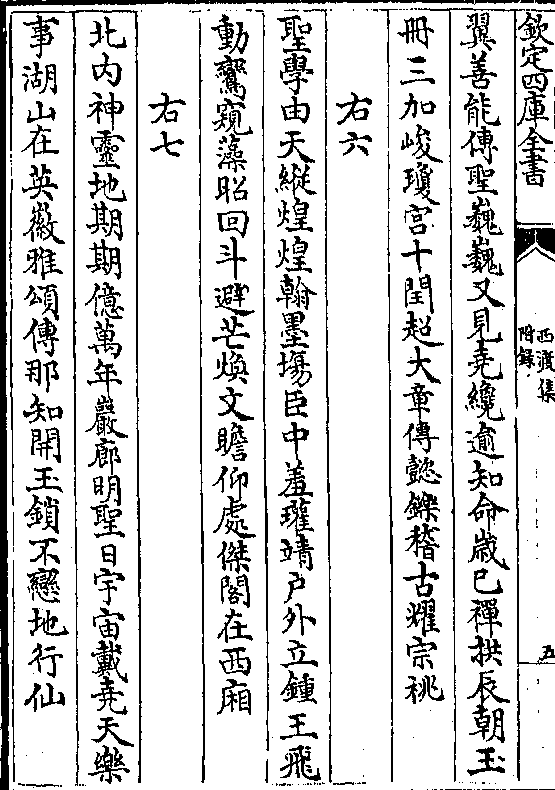 欽定四庫全書
西渡集
附錄
五
翼善能傳聖巍巍又見堯纔逾知命歲已禪拱辰朝玉
冊三加峻瓊宮十閏超大章傳懿鑠稽古耀宗祧
右六
聖學由天縱煌煌翰墨場臣中羞瓘靖戶外立鍾王飛
動鸞窺藻昭回斗避芒煥文瞻仰處傑閣在西廂
右七
北内神靈地期期億萬年巖廊明聖日宇宙戴堯天樂
事湖山在英徽雅頌傳那知開玉鎖不戀地行仙